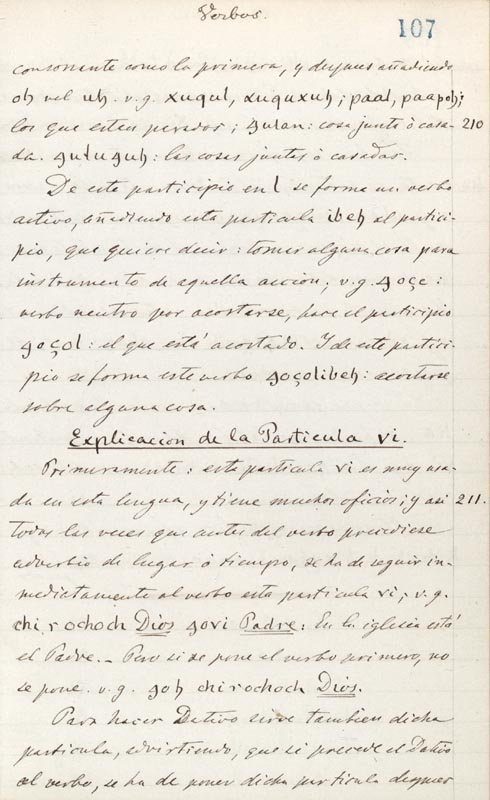 Verbos.
107
consonante como la primera, y despues añadiendo
oh vel uh. v.g. xuqul, xuquxuh; paal, paapoh;
los que esten parados; ꜭulan: cosa junta ò casa- 210
da. ꜭuluꜭuh: las cosas juntas ò casadas.
De este participio en l se forma un verbo
activo, añadiendo esta particula ibeh al partici-
pio, que quiere decir: tomar alguna cosa para
instrumento de aquella accion; v.g. ꜭoçe:
verbo neutro por acostarse, hace el participio
ꜭoçol: el que está acostado. Y de este partici-
pio se forma este verbo ꜭoçolibeh: acostarse
sobre alguna cosa.
Explicacion de la Particula vi.
Primeramente: esta particula vi es muy usa-
da en esta lengua, y tiene muchos oficios; y asi 211.
todas las veces que antes del verbo precediese
adverbio de lugar ò tiempo, se ha de seguir in-
mediatamente al verbo esta particula vi; v.g.
chi rochoch Dios ꜭovi Padre: En la iglesia está
el Padre. – Pero si se pone el verbo primero, no
se pone. v.g. ꜭoh chi rochoch Dios.
Para hacer Dativo sirve tambien dicha
particula, advirtiendo, que si precede el Dativo
al verbo, se ha de poner dicha particula despues